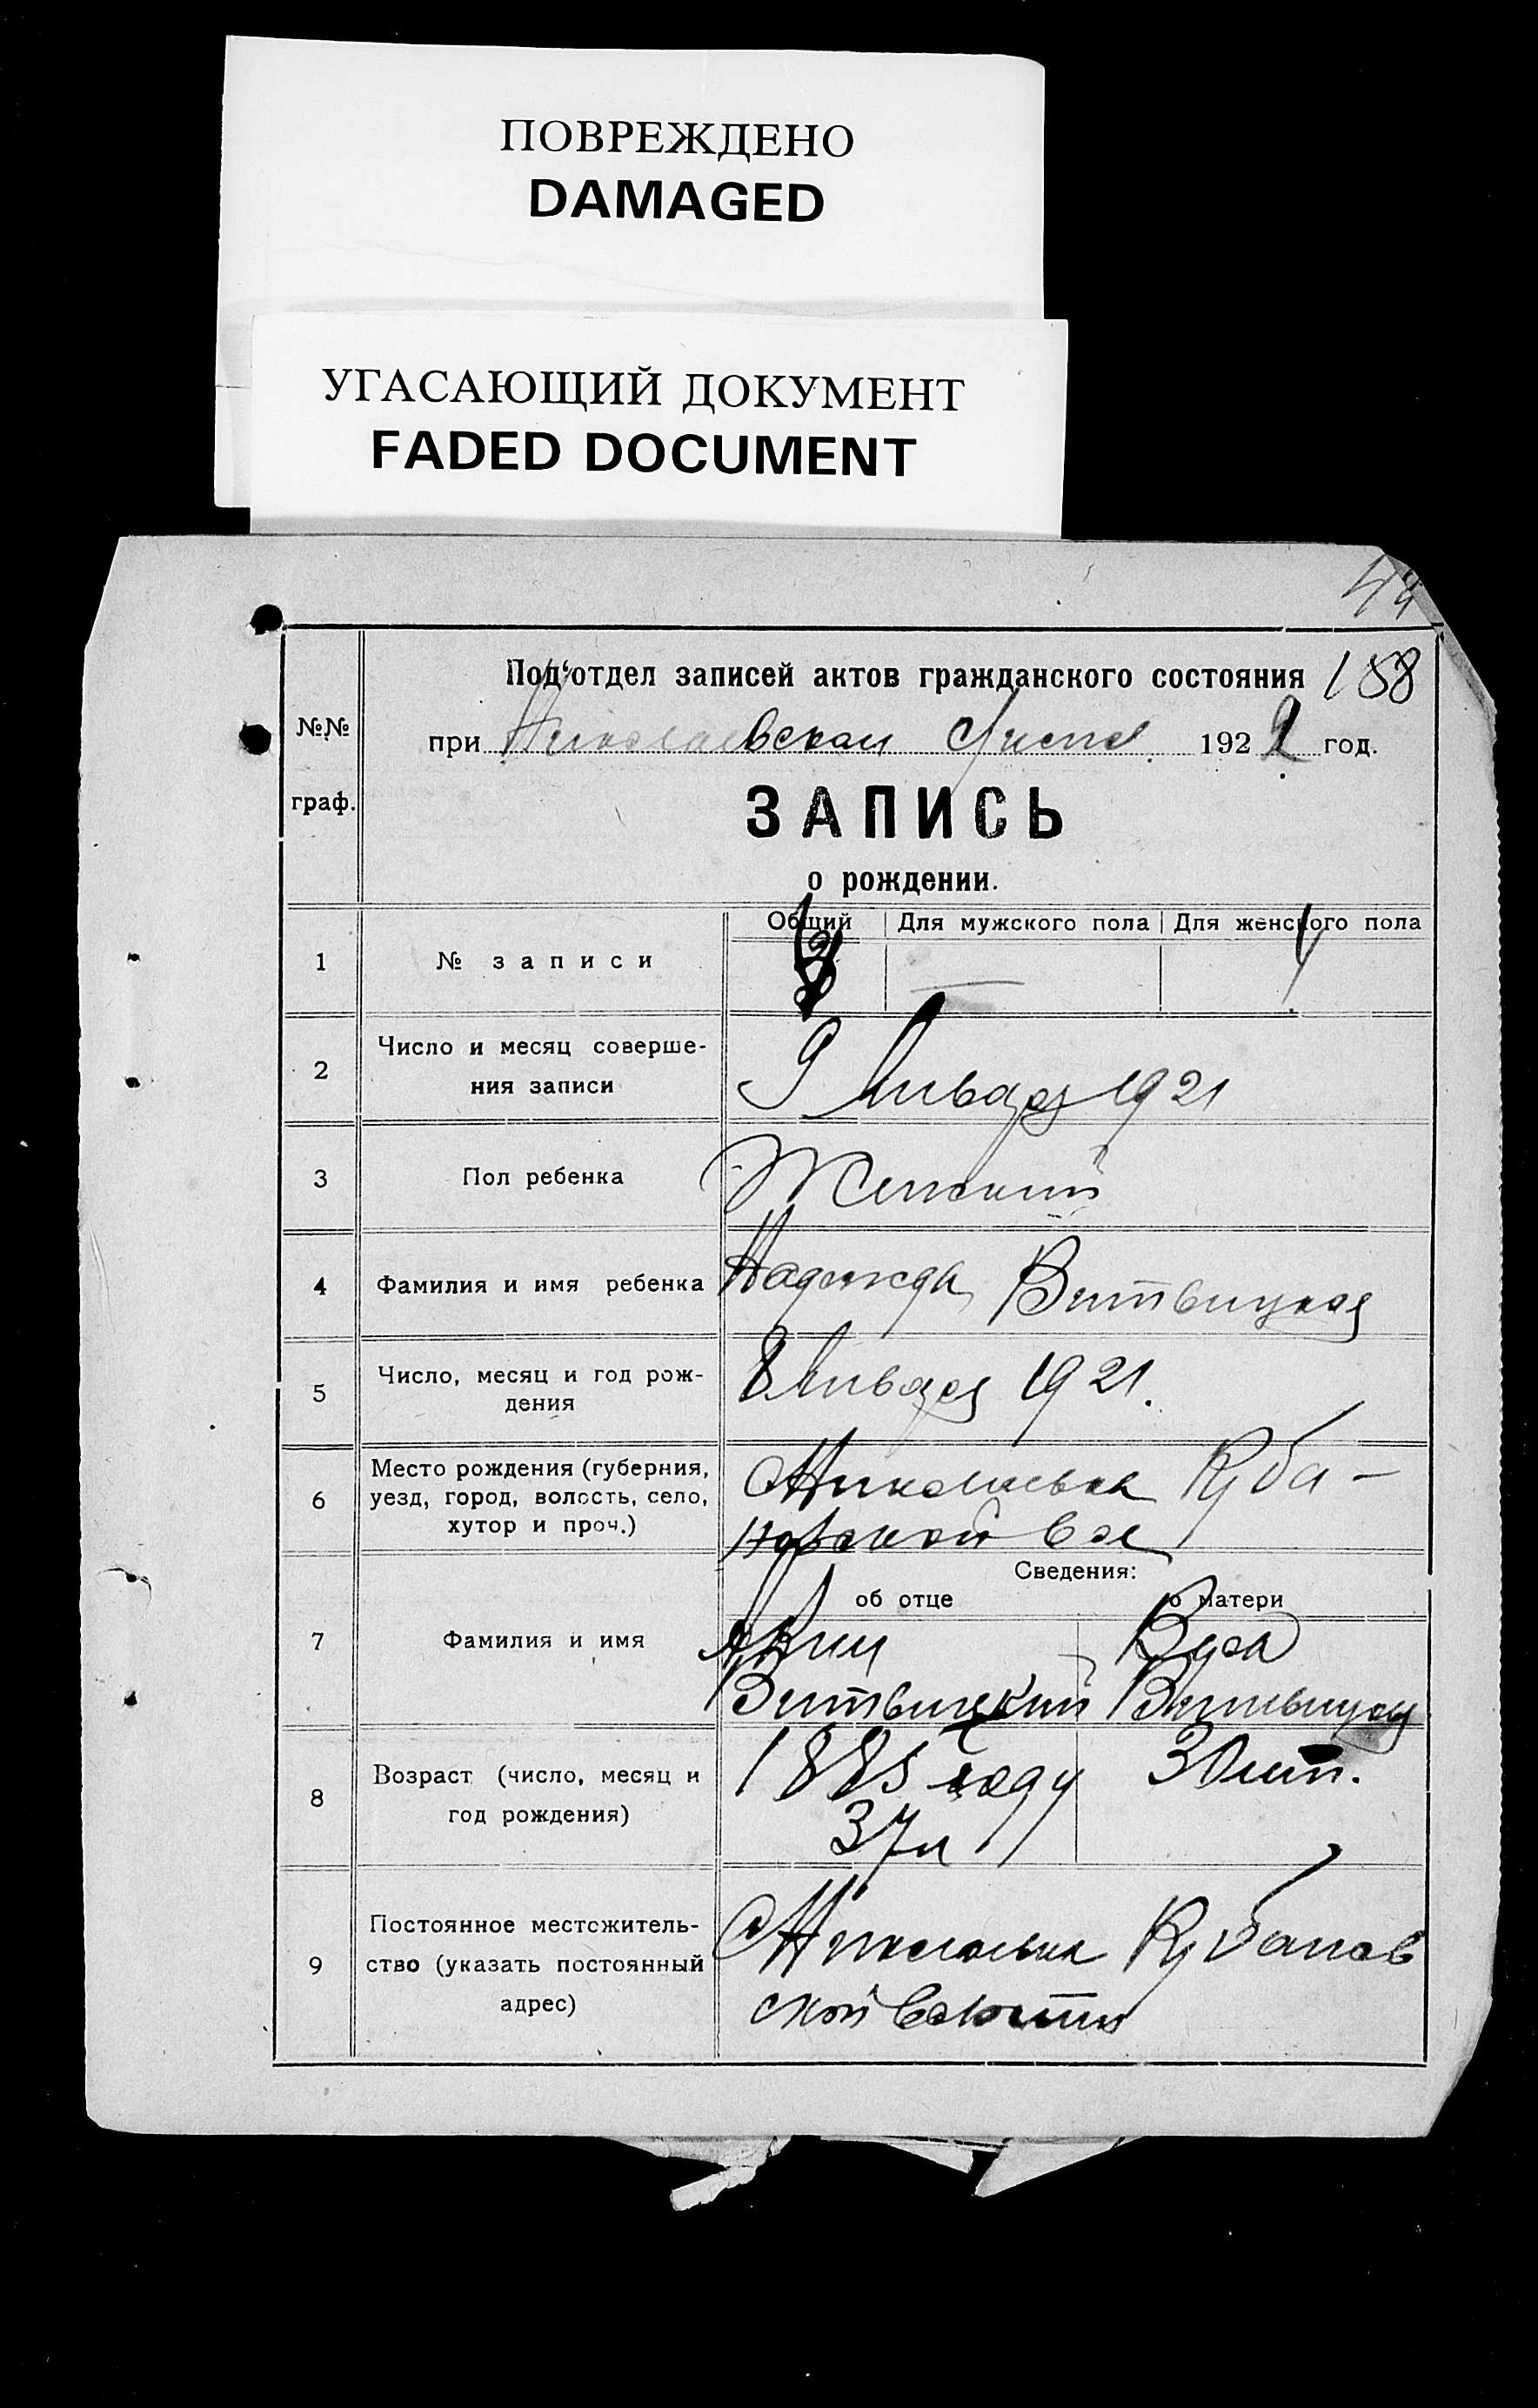 ПОВРЕЖДЕНО
DAMAGED
УГАСАЮЩИЙ ДОКУМЕНТ
FADED DOCUMENT
44
Под'отдел записей актов гражданского состояния 158
№№ граф.
при Николаевском 1922 год.
ЗАПИСЬ
о рождении.
Общий Для мужского пола Для женского пола
1 № записи — 4
2 Число и месяц соверше-
ния записи
9 Января 1921
3 Пол ребенка Женский
4 Фамилия и имя ребенка Надежда Витвицкая
5 Число, месяц и год рож-
дения
8 Января 1921.
6 Место рождения (губерния,
уезд, город, волость, село,
хутор и проч.)
Николаевка Куба-
новской вол
Сведения:
об отце о матери
7 Фамилия и имя
Вера
Витвицкий Витвицкая
8 Возраст (число, месяц и
год рождения)
1885 году
37 л
30 лет.
9 Постоянное местожитель-
ство (указать постоянный
адрес)
Николаевка Кубанов
ской волости